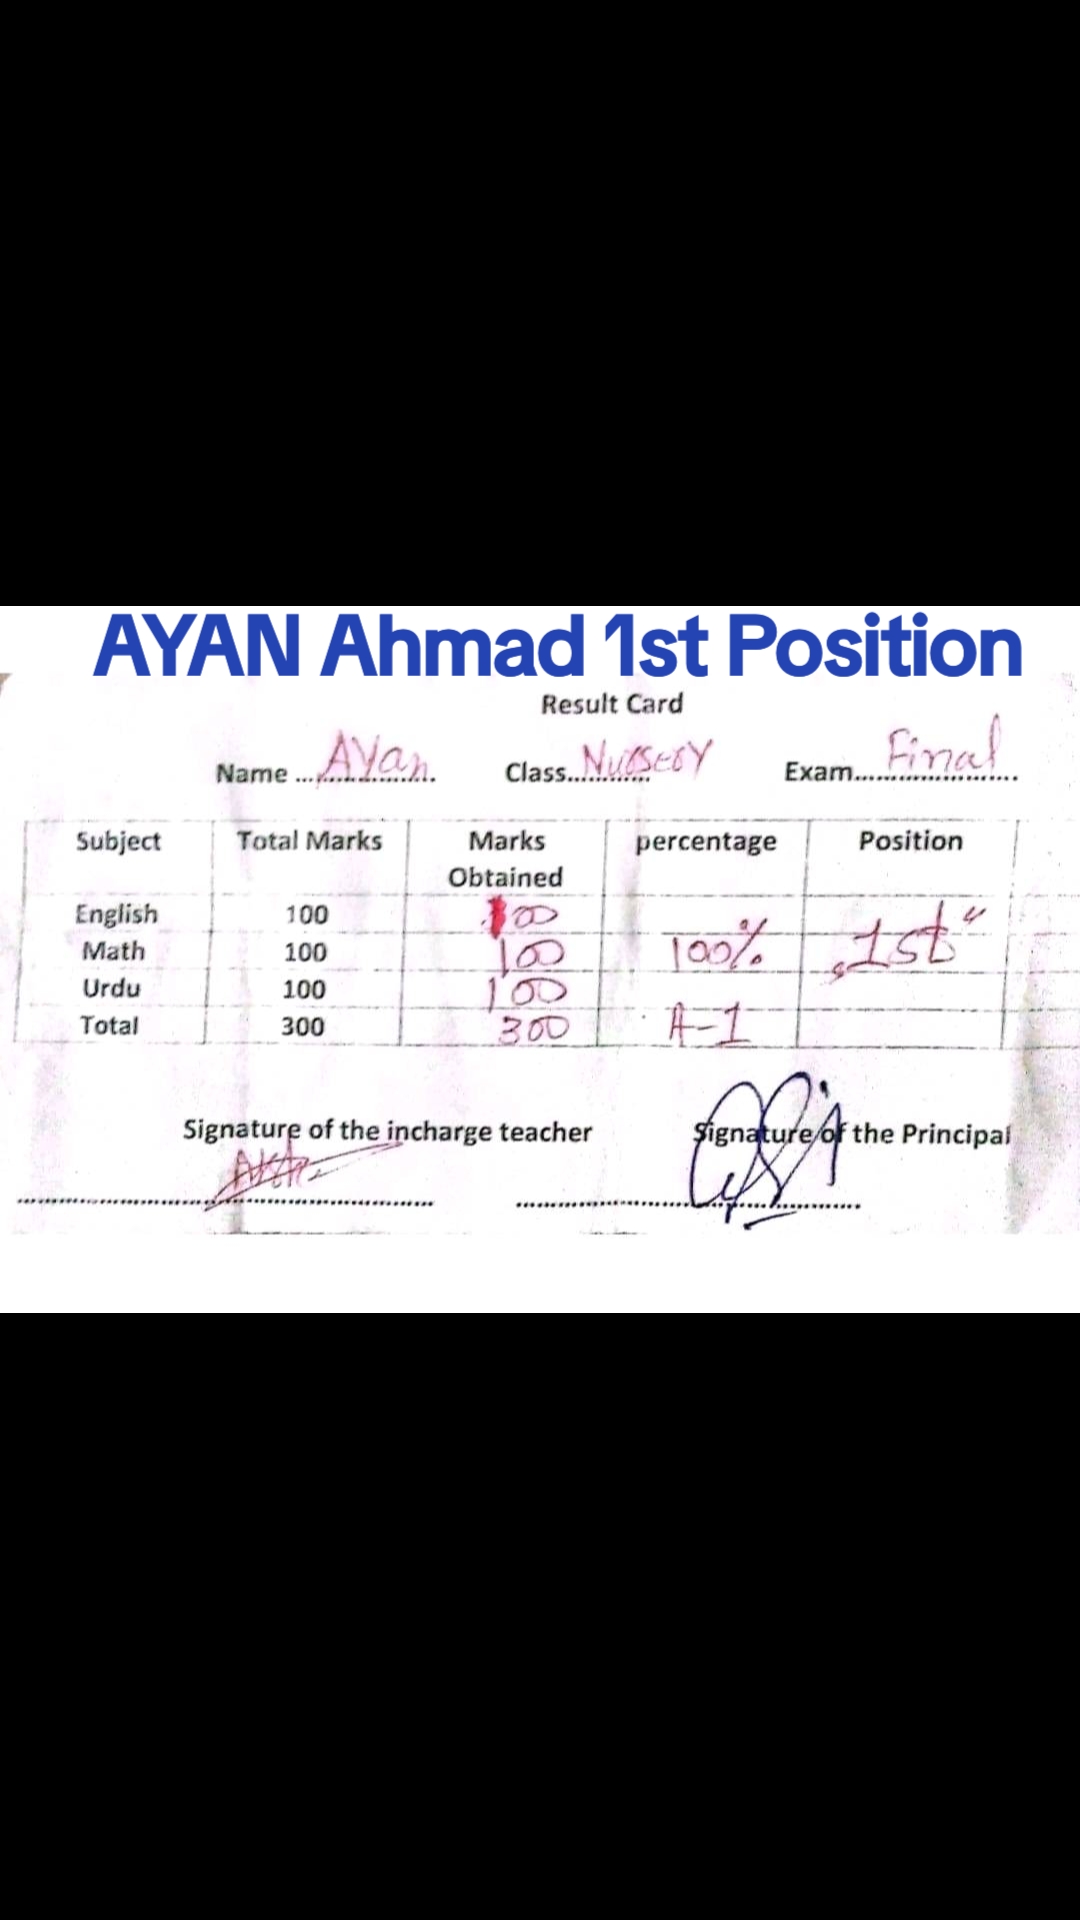 AYAN Ahmad 1st Position
Result Card
Name ... Ayan Class... Nursery Exam... Final
Subject Total Marks Marks Obtained percentage Position
English 100 100
Math 100 100 100% 1st
Urdu 100 100
Total 300 300 A-1
Signature of the incharge teacher Signature of the Principal